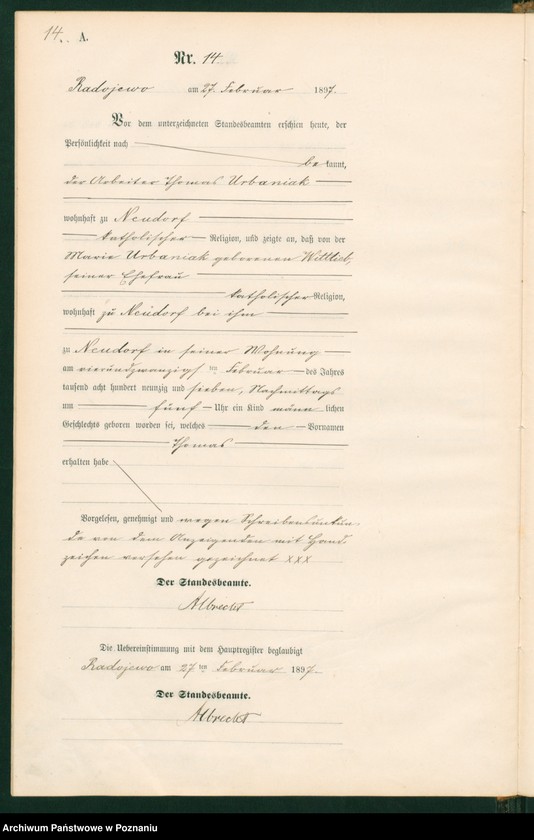 14. A.
Nr. 14
Radojewo am 27. Februar 1897.
Vor dem unterzeichneten Standesbeamten erschien heute, der
Persönlichkeit nach
be kannt,
der Arbeiter Thomas Urbaniak
wohnhaft zu Neudorf
katholischer Religion, und zeigte an, daß von der
Marie Urbaniak geborenen
seiner Ehefrau
katholischer Religion,
wohnhaft zu Neudorf bei ihm
zu Neudorf in seiner Wohnung
am vierundzwanzigsten Februar des Jahres
tausend acht hundert neunzig und sieben, Nachmittags
um fünf Uhr ein Kind männlichen
Geschlechts geboren worden sei, welches den Vornamen
Thomas
erhalten habe
Vorgelesen, genehmigt und wegen Schreibensunkun
de von dem Anzeigenden mit Hand
zeichen versehen gezeichnet xxx
Der Standesbeamte.
Albrecht
Die Uebereinstimmung mit dem Hauptregister beglaubigt
Radojewo am 27 ten Februar 1897.
Der Standesbeamte.
Albrecht
Archiwum Państwowe w Poznaniu